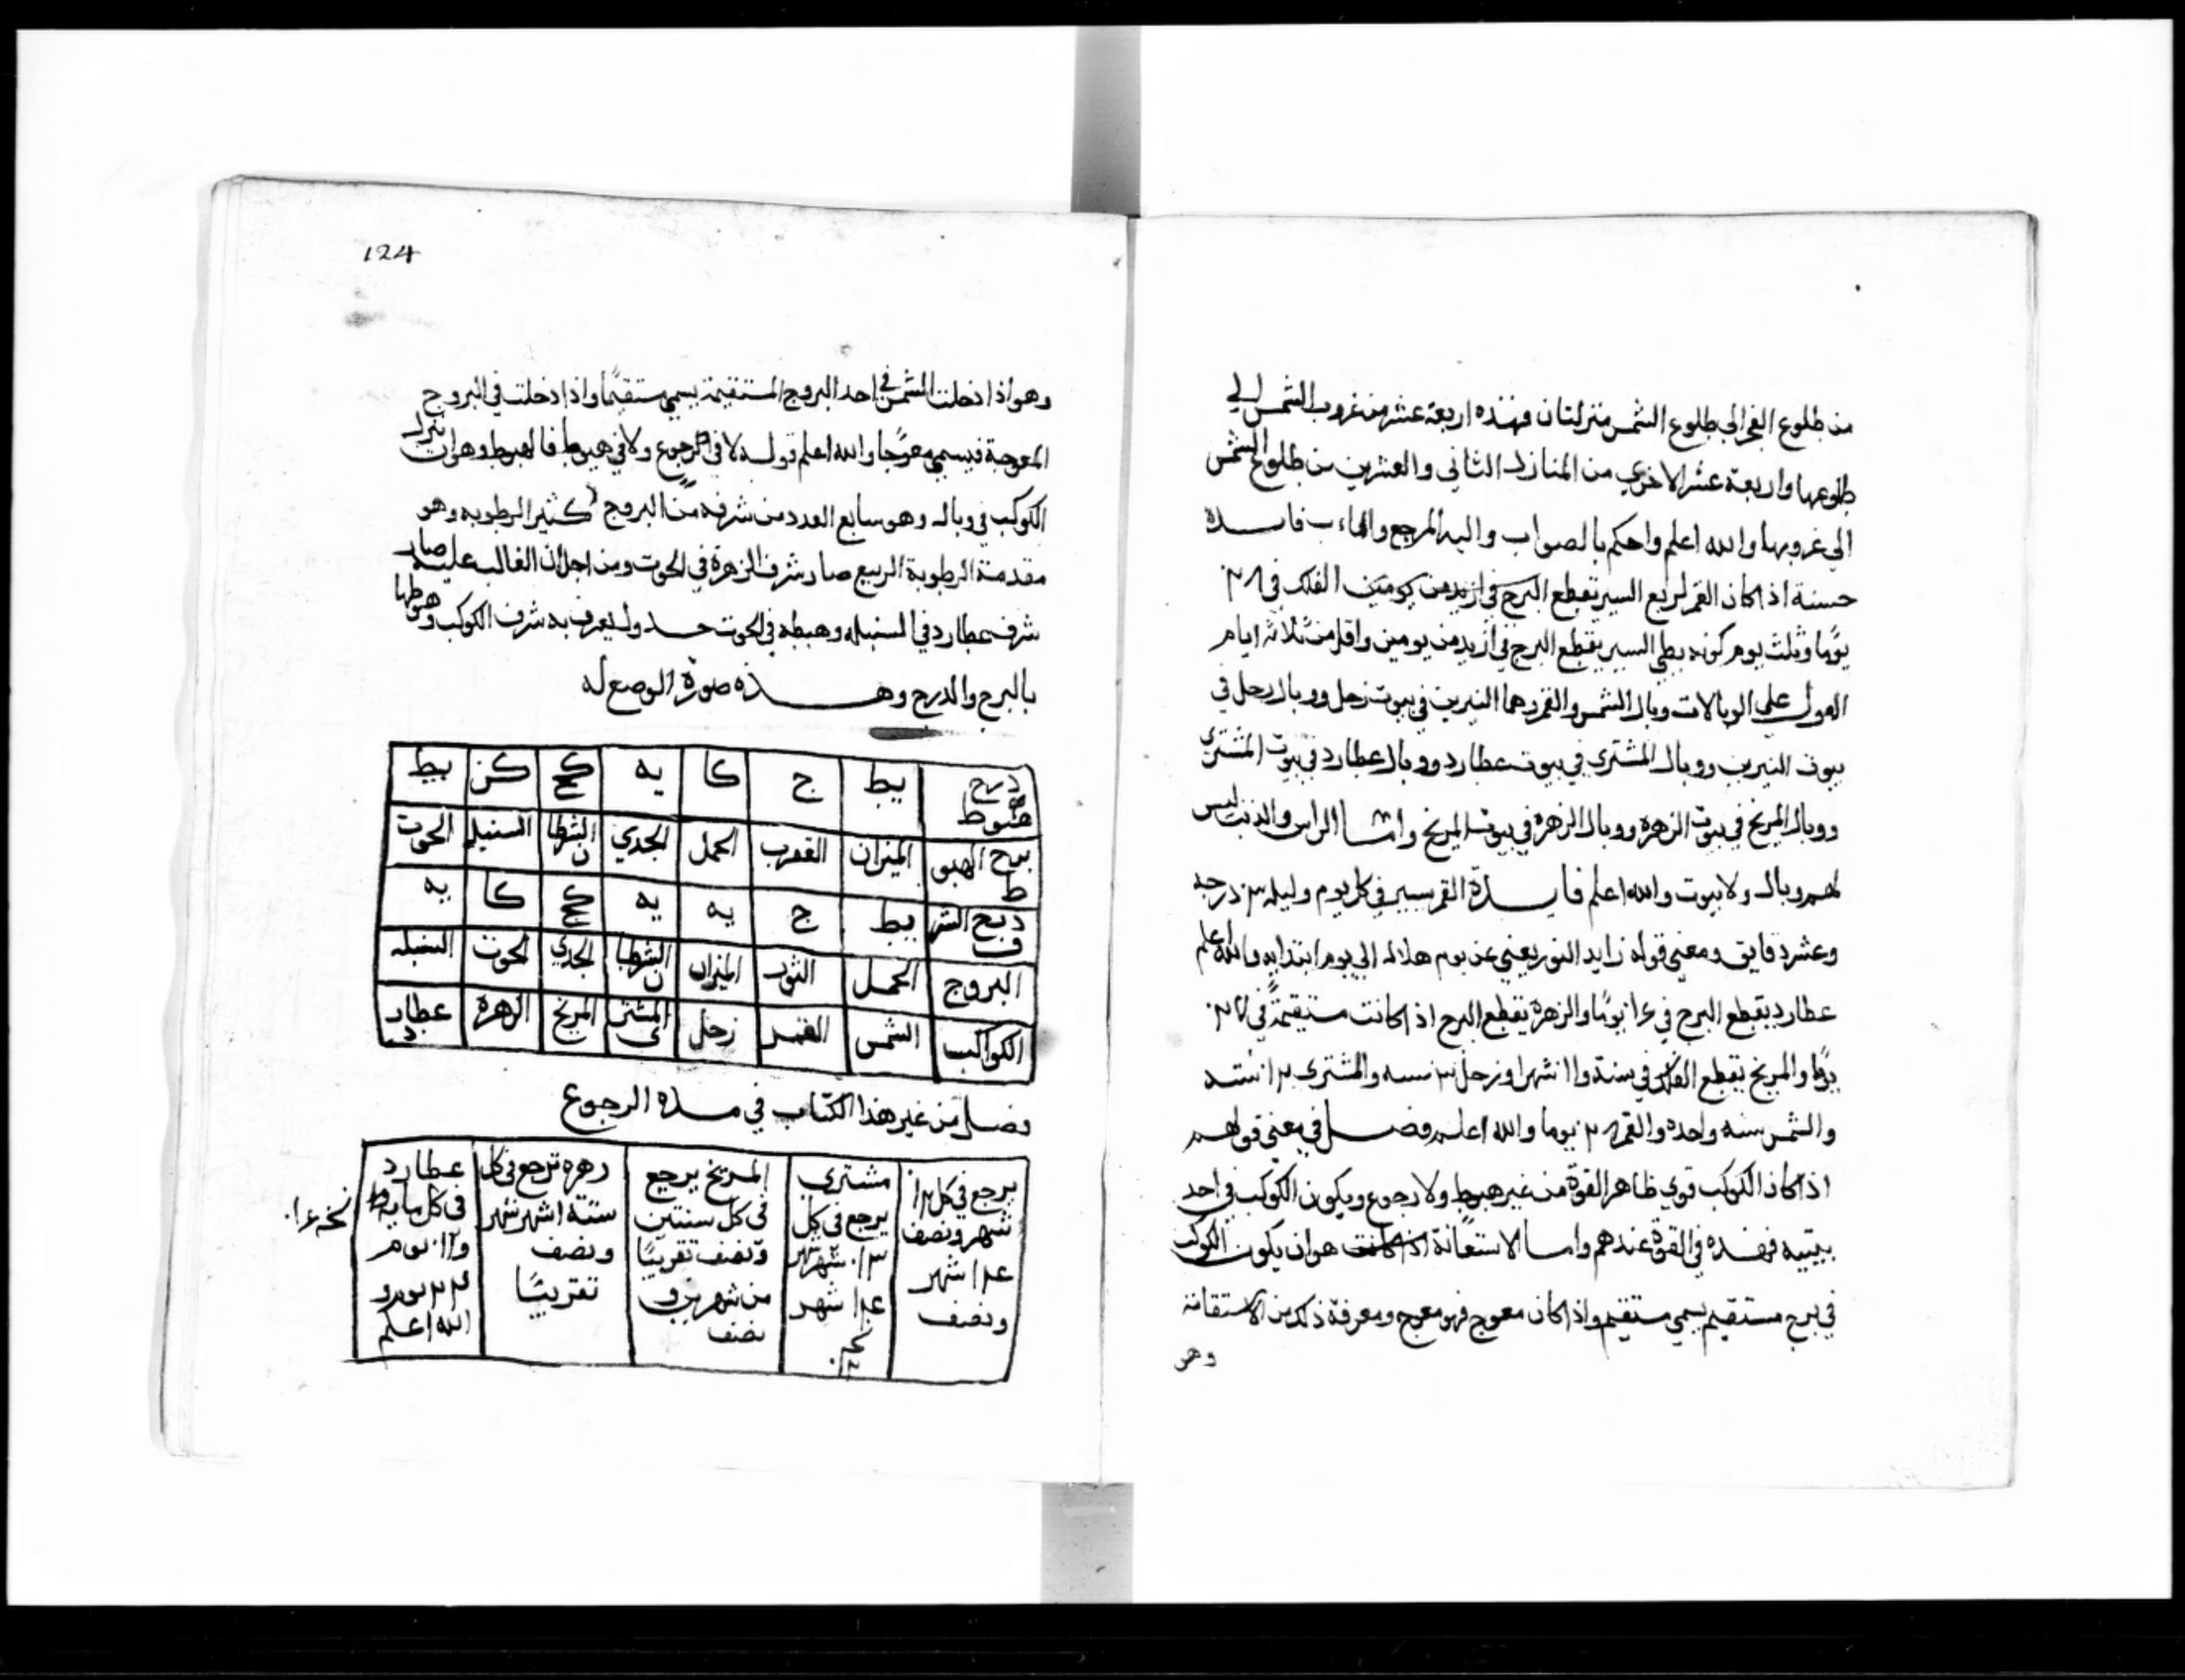 من طلوع الفجر الى طلوع الشمس منزلتان فهذه اربعة عشر من غروب الشمس الي
طلوعها واربعة عشر الاخري من المنازل الثاني والعشرين من طلوع الشمس
الي غروبها والله اعلم واحكم بالصواب واليه المرجع والماءب فايدة
حسنة اذا كان القمر سريع السير تقطع البرج في ازيد من يومين الفلك في ٢٨
يومًا وثلث يوم كونه بطي السير يقطع البرج في ازيد من يومين واقل من ثلاثة ايام
القول على الوبالات وبال الشمس والقمر دهما النيرين في بيوت زحل ووبال زحل في
بيوت النيرين ووبال المشتري في بيوت عطارد ووبال عطارد في بيوت المشتري
ووبال المريخ في بيوت الزهره ووبال الزهره في بيوت المريخ واما الراس والذنب ليس
لهم وبال ولا بيوت والله اعلم فايدة القمر يسير في كل يوم وليله ١٣ درجه
وعشر دقايق ومعني قوله زايد النور يعني عن يوم هلاله الي يوم ابتدايه والله اعلم
عطارد يقطع البرج في يومًا والزهره يقطع البرج اذا كانت مستقيمةً في ٢٧
يومًا والمريخ يقطع الفلك في سنة و١١ شهرا وزحل ٣٠ سنه والمشتري ١٢ سنة
والشمس سنه واحده والقمر ٢٨ يوما والله اعلم فصل في معني قولهم
اذا كان الكوكب قوي ظاهر القوة من غير هبوط ولا رجوع ويكون الكوكب في احد
بيتيه فهذه في القوة عندهم واما الاستعانة اذا كانت هو ان يكون الكوكب
في برج مستقيم يسمي مستقيم واذا كان معوج فهو معوج ومعرفة ذلك من الاستقامة
وهو
124
وهو اذا دخلت الشمس في احد البروج المستقيمة يسمي مستقيمًا واذا دخلت في البروج
المعوجة فيسمي معوجًا والله اعلم قوله لا في الرجوع ولا في هبوط فالهبوط وهو ان ينزل
الكوكب في وباله وهو سابع العدد من شرفه من البروج كثير الرطوبه وهو
مقدمة الرطوبة الربيع صار شرف الزهرة في الحوت ومن اجل ان الغالب عليه صار
شرف عطارد في السنبله وهبطه في الحوت جدول يعرف به شرف الكوكب وهبوطها
بالبرج والدرج وهذه صورة الوضع له
درج هبوط | يط | ج | كا | يه | كح | كز | يط
برج الهبوط | الميزان | العقرب | الحمل | الجدي | السرطان | السنبله | الحوت
درج الشرف | يط | ج | يه | يه | كح | كا | يه
البروج | الحمل | الثور | الميزان | السرطان | الجدي | الحوت | السنبله
الكواكب | الشمس | القمر | زحل | المشتري | المريخ | الزهرة | عطارد
فصل من غير هذا الكتاب في مدة الرجوع
يرجع في كل ١٢ شهر ونصف ١٤ شهر ونصف
مشتري يرجع في كل ١٣ شهر شهر ١٤ شهر
المريخ يرجع في كل سنتين ونصف تقريبًا من شهرين و نصف
زهره ترجع في كل سنة ١ شهر شهر ونصف تقريبًا
عطارد في كل يوم ٢٢ يوم و الله اعلم